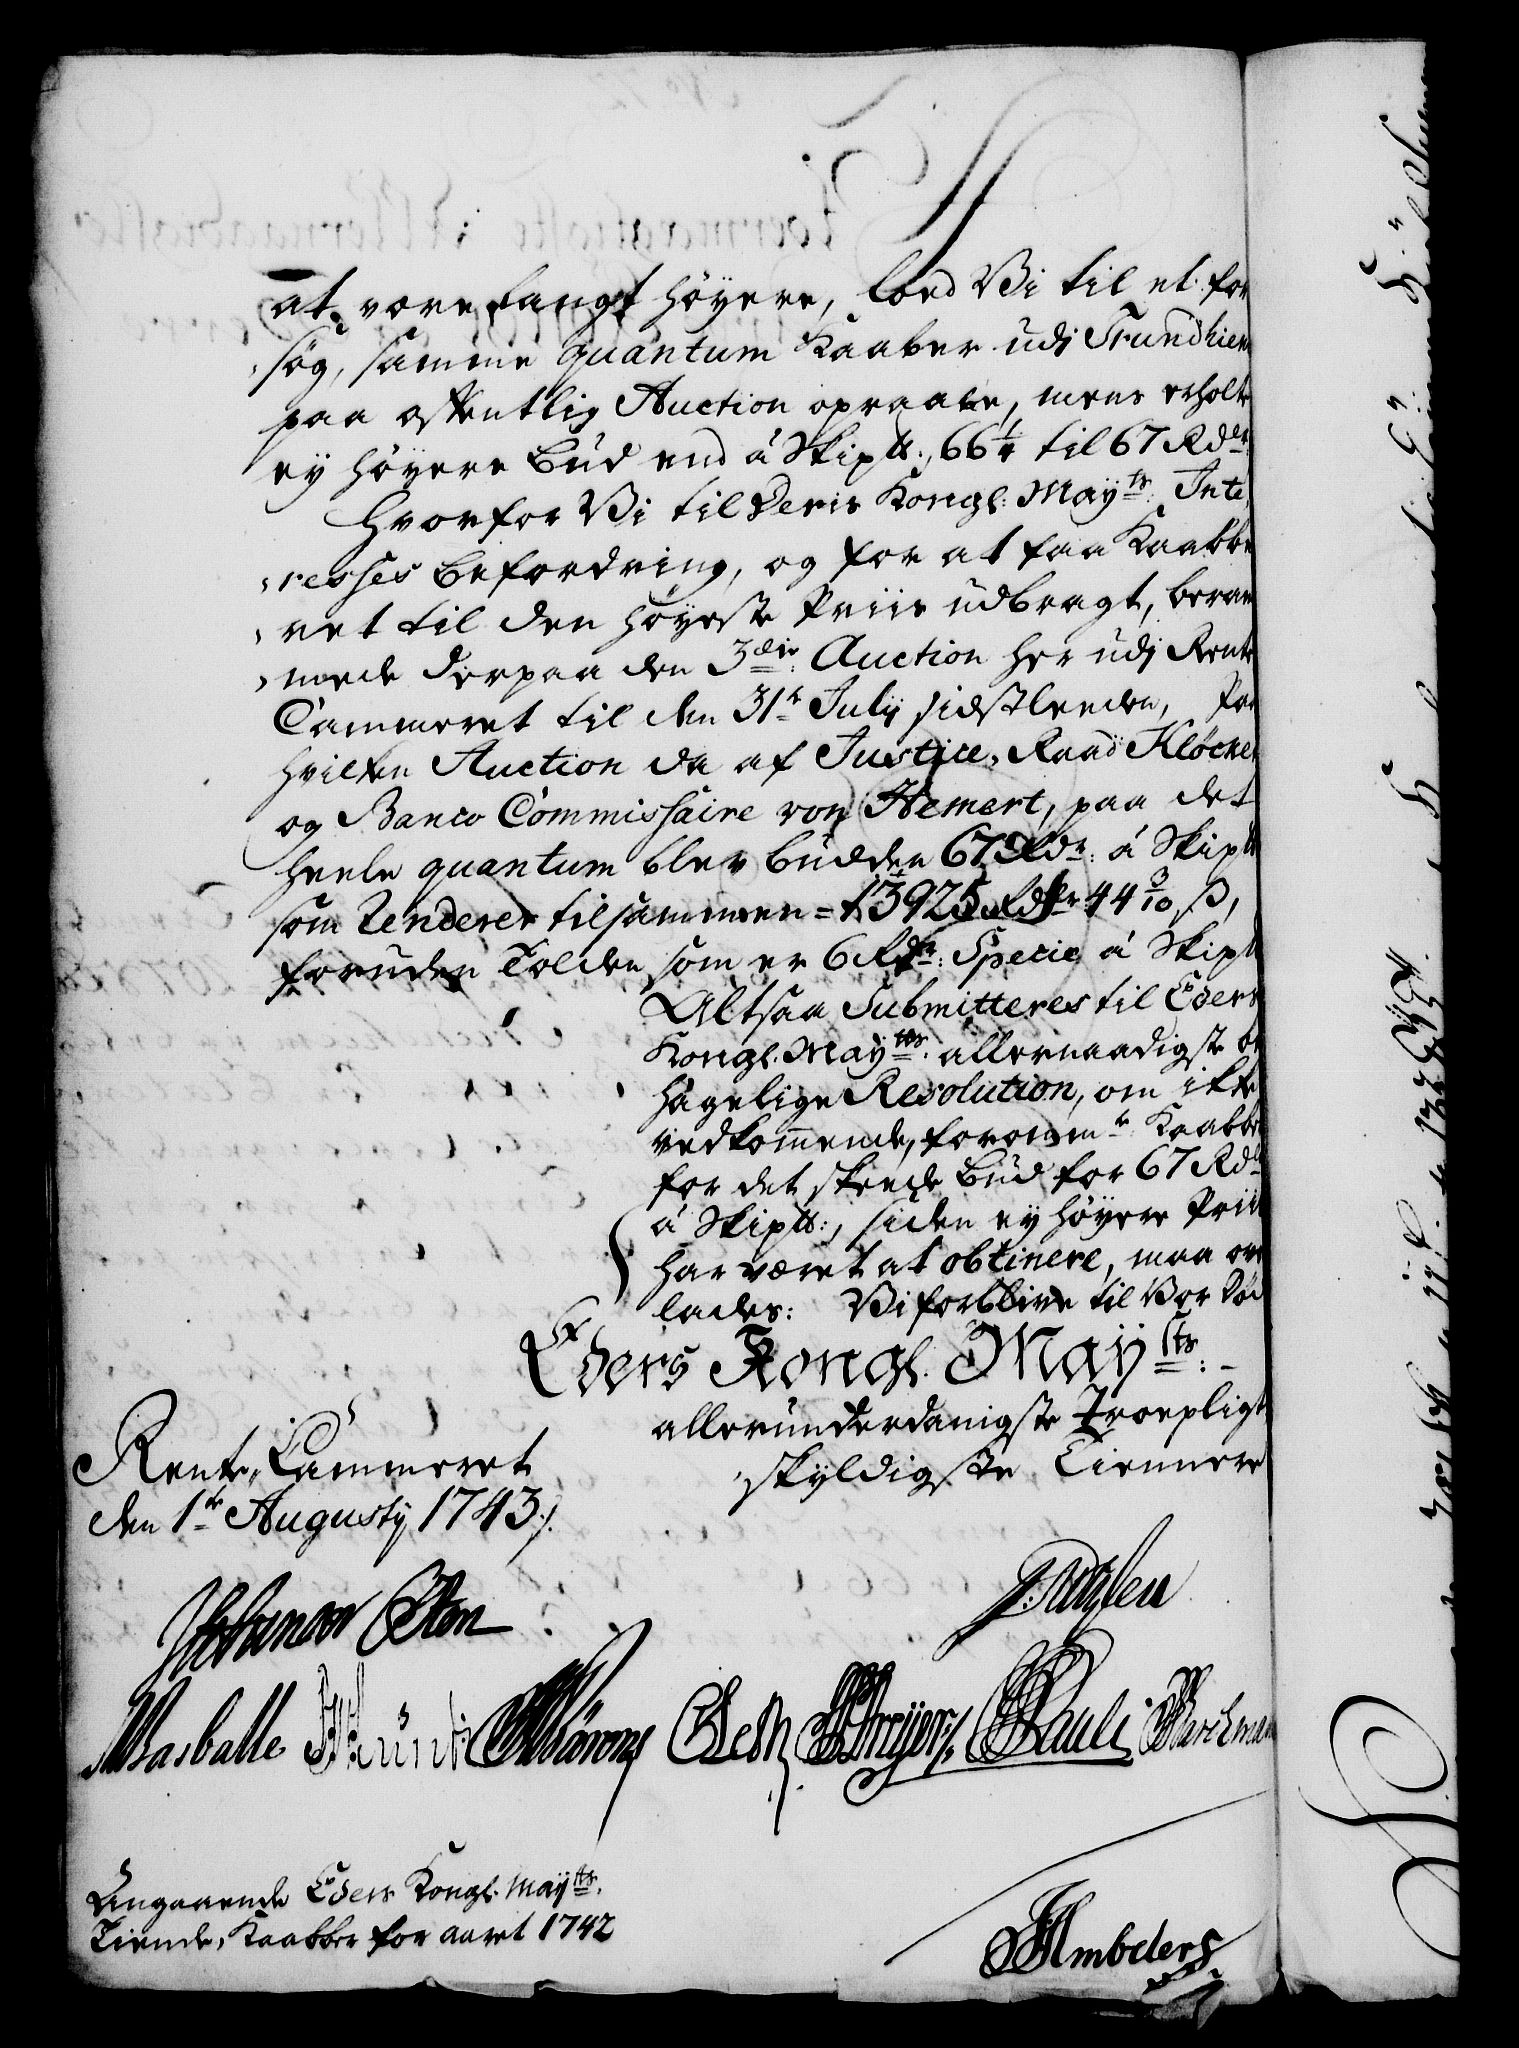 at være langt høyere, loed Vi til et for
søg, samme quantum Kaaber udj Trundhiem
paa offentlig Auction opraabe, mens erholte
ey høyere bud end á Skip℔: 66¼ til 67 Rdlr:
Hvorfor Vi til Deris Kongl: Mayts: Inte
resses befordring, og for at faa Kaabbe
ret til den høyeste Priis udbragt, beram
mede derpaa den 3die: Auction her udj Rente
Cammeret til den 31te July sidstleeden, Paa
hvilken Auction da af Justice-Raad Kløcker
og Banco Commissaire von Hemert, paa det
heele quantum blev budden 67 Rdr: á Skip℔
som Renderer tilsammen = 13925 Rdlr 44 3/10 ß,
foruden Tolden som er 6 Rdr: Specie á Skip℔
Altsaa Submitteres til Eders
Kongl. Mayts: allernaadigste be
hagelige Resolution, om ikke
vedkommende, forommte: Kaabber
for det skeede bud for 67 Rdlr
á Skip℔:, siden ey høyere Priis
har været at obtinere, maa over
lades: Vi forblive til Vor Død
Eders Kongl. Mayts: -
allerunderdanigste Troepligt
skyldigste Tiennere
Rente-Cammeret
den 1te Augusty 1743 ./.
Pauli
Angaaende Eders Kongl. Mayts.
Tiende-Kaabber for aaret 1742